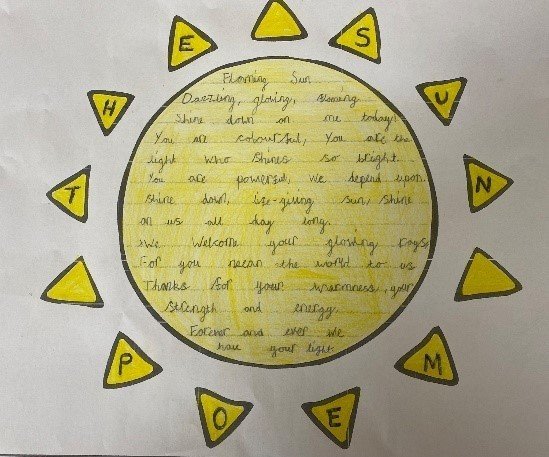 THE SUN
POEM
Flaming Sun
Dazzling, glowing, flaming
Shine down on me today!
You are colourful, You are the
light who shines so bright.
You are powerful, we depend upon.
Shine down, life-giving sun, shine
on us all day long.
We Welcome your glowing rays
For you mean the world to us
Thanks for your warmness, your
strength and energy.
Forever and ever we
have your light.